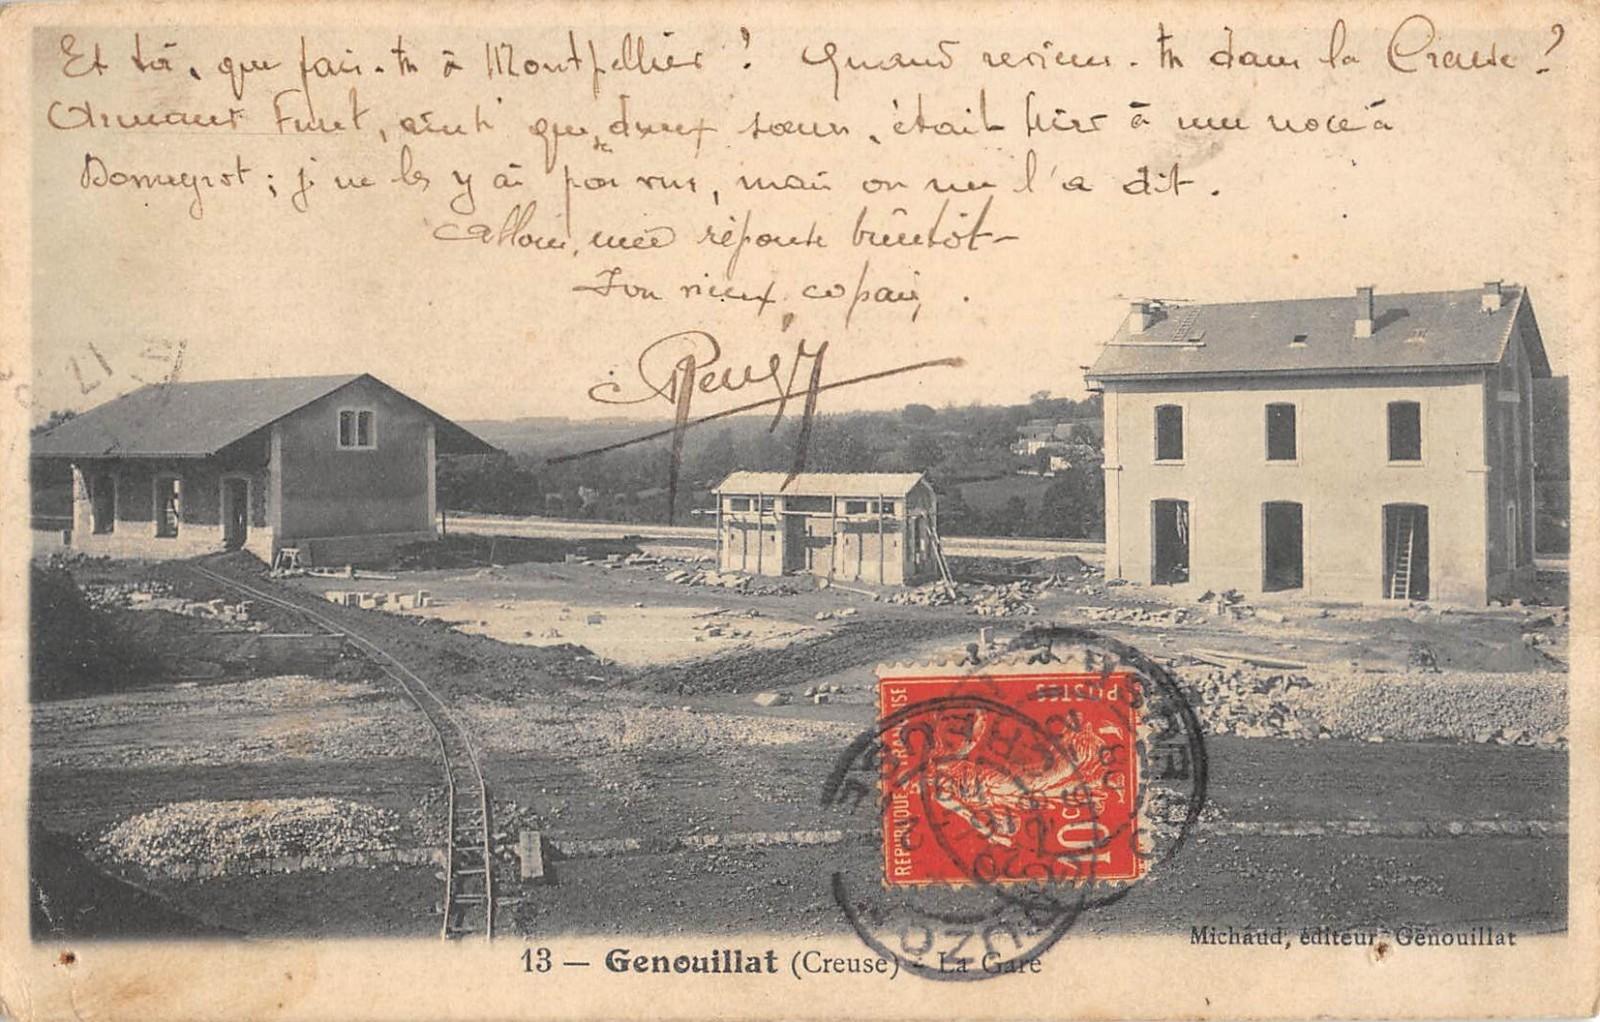 Et toi, que fais-tu à Montpellier ? Quand reviens-tu dans la Creuse ?
Armand Furet, ainsi que deux sœurs, était hier à une noce à
Domeyrot ; je ne les y ai pas vus, mais on me l'a dit.
de
Allons, une réponse bientôt -
Ton vieux copain.
RÉPUBLIQUE FRANÇAISE
POSTES
10 C
Michaud, éditeur, Genouillat
13 — Genouillat (Creuse) - La Gare